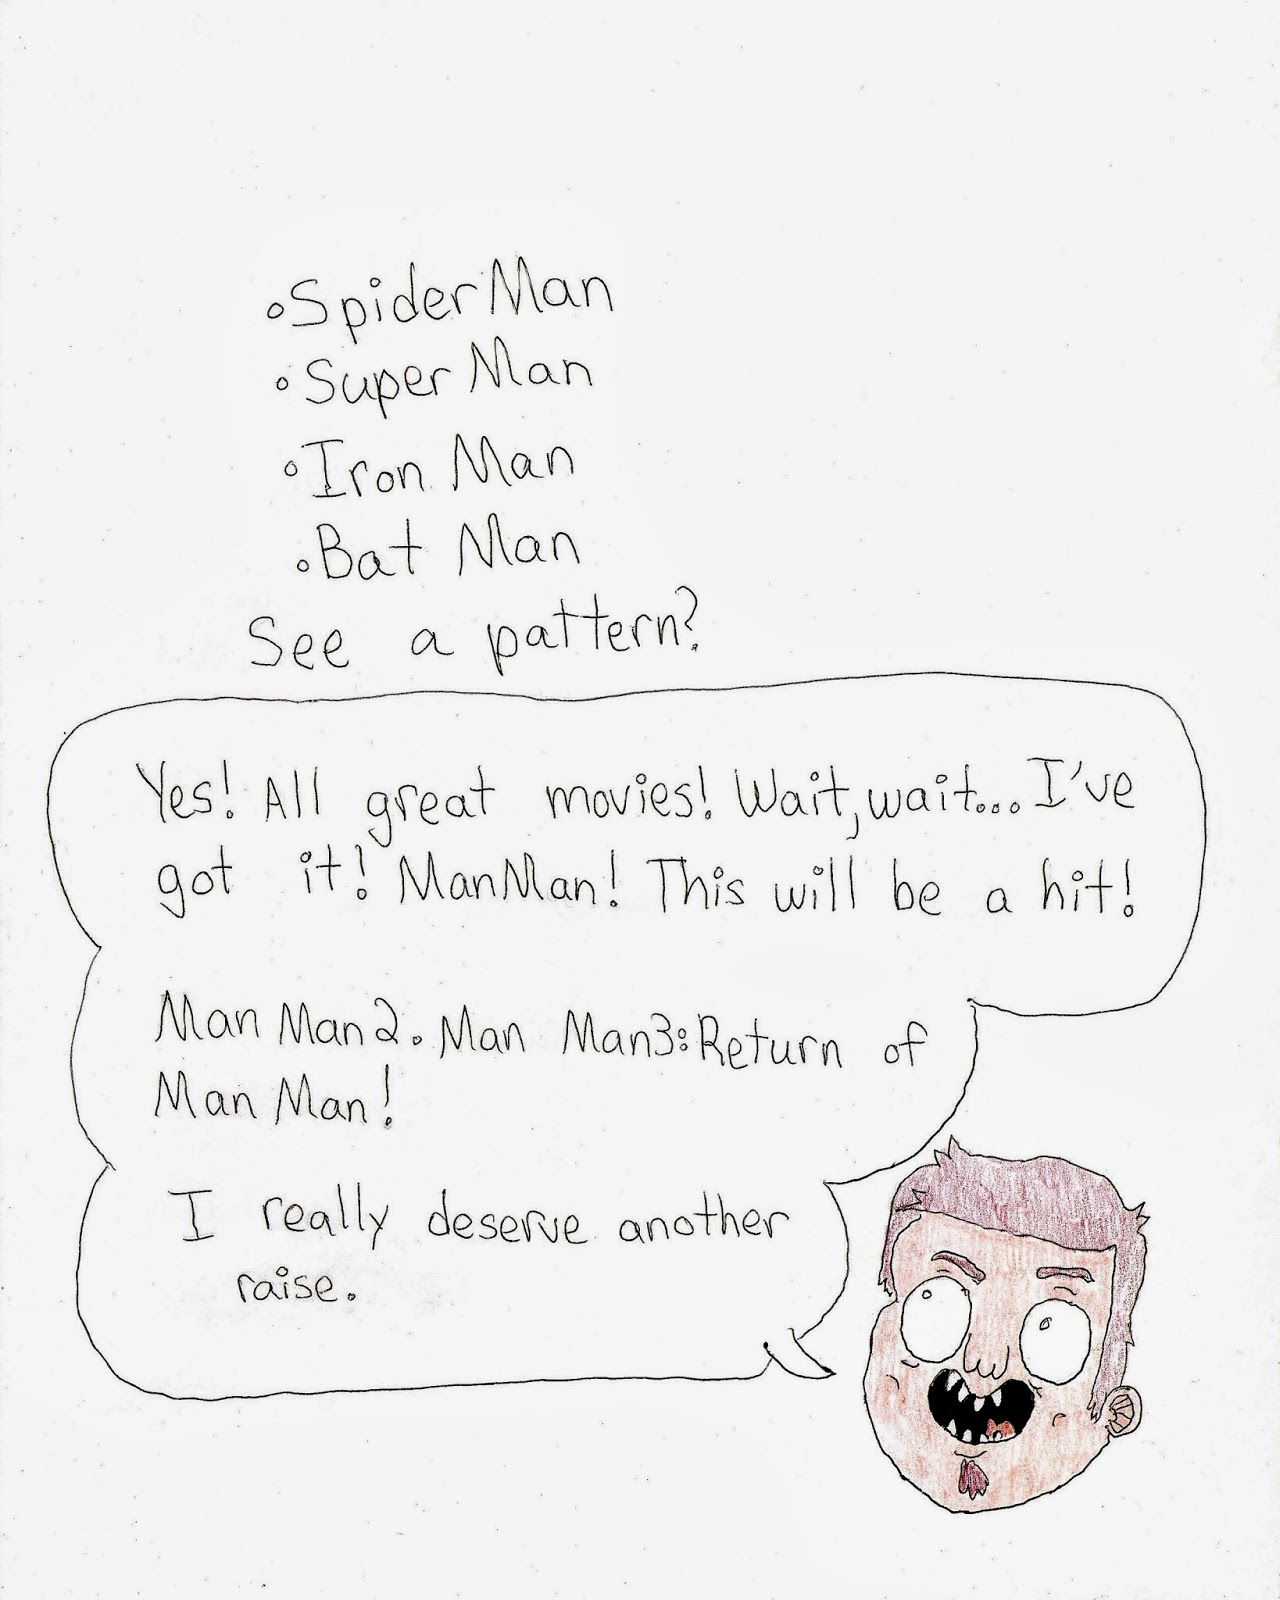 ◦SpiderMan
◦Super Man
◦Iron Man
◦Bat Man
See a pattern?
Yes! All great movies! Wait, wait... I've
got it! ManMan! This will be a hit!
Man Man2. Man Man3: Return of
Man Man!
I really deserve another
raise.